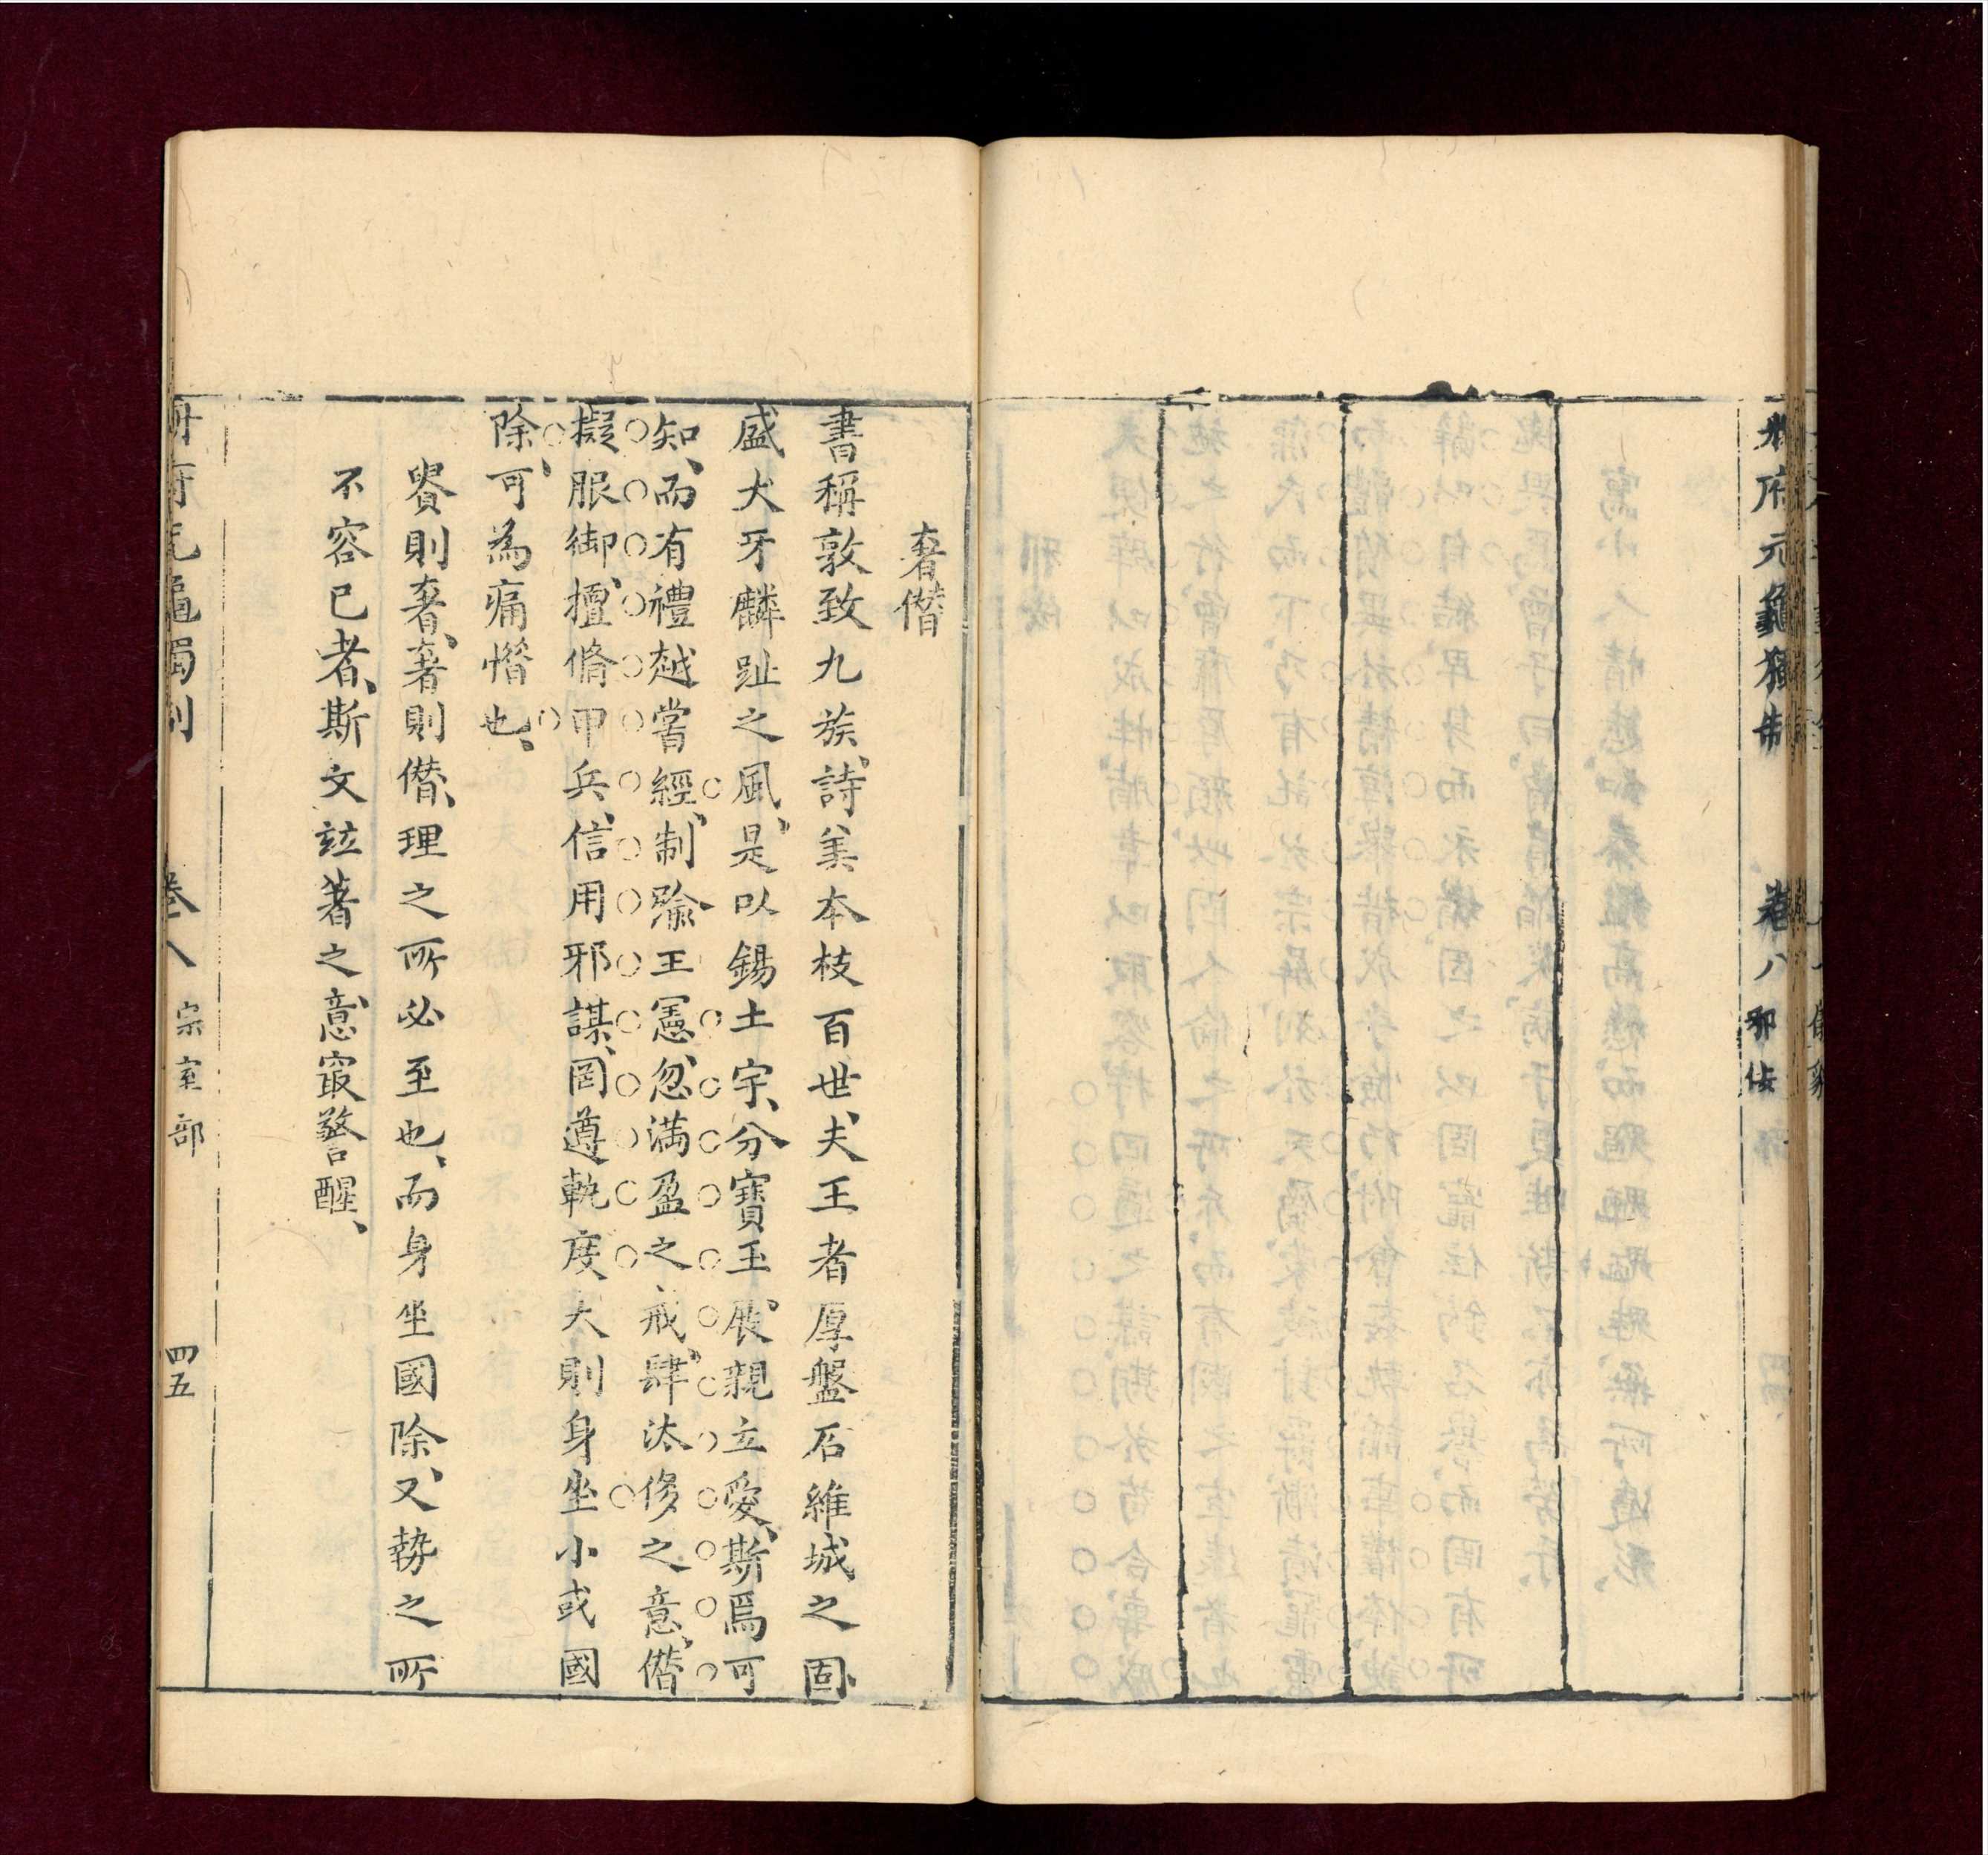 册府元龜獨制 卷八 邪佞
奢僣
書稱敦致九族、詩美本枝百世、夫王者厚盤石維城之固、
盛犬牙麟趾之風、是以錫土宇、分寶玉、展親立愛、斯焉可
知、而有禮越嘗經、制踰王憲、忽滿盈之戒、肆汰侈之意、僣
擬服御、擅脩甲兵、信用邪謀、罔遵軌度、大則身坐、小或國
除、可為痛惜也、
貴則奢、奢則僣、理之所必至也、而身坐國除、又勢之所
不容已者、斯文竝著之、意㝡警醒、
册府元龜獨制 卷八 宗室部 四五